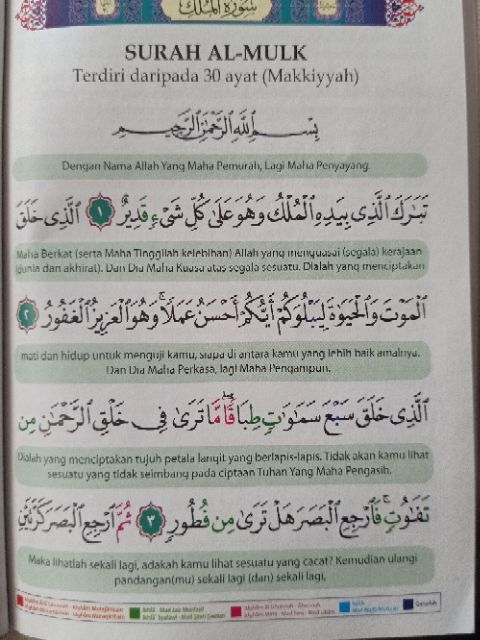 سُورَةُ الْمُلْكِ
SURAH AL-MULK
Terdiri daripada 30 ayat (Makkiyyah)
بِسْمِ اللَّهِ الرَّحْمَٰنِ الرَّحِيمِ
Dengan Nama Allah Yang Maha Pemurah, Lagi Maha Penyayang.
تَبَارَكَ الَّذِي بِيَدِهِ الْمُلْكُ وَهُوَ عَلَىٰ كُلِّ شَيْءٍ قَدِيرٌ ١ الَّذِي خَلَقَ
Maha Berkat (serta Maha Tinggilah kelebihan) Allah yang menguasai (segala) kerajaan
(dunia dan akhirat). Dan Dia Maha Kuasa atas segala sesuatu. Dialah yang menciptakan
الْمَوْتَ وَالْحَيَوٰةَ لِيَبْلُوَكُمْ أَيُّكُمْ أَحْسَنُ عَمَلًا ۚ وَهُوَ الْعَزِيزُ الْغَفُورُ ٢
mati dan hidup untuk menguji kamu, siapa di antara kamu yang lebih baik amalnya.
Dan Dia Maha Perkasa, lagi Maha Pengampun.
الَّذِي خَلَقَ سَبْعَ سَمَٰوَٰتٍ طِبَاقًا ۖ مَّا تَرَىٰ فِي خَلْقِ الرَّحْمَٰنِ مِن
Dialah yang menciptakan tujuh petala langit yang berlapis-lapis. Tidak akan kamu lihat
sesuatu yang tidak seimbang pada ciptaan Tuhan Yang Maha Pengasih.
تَفَٰوُتٍ ۖ فَارْجِعِ الْبَصَرَ هَلْ تَرَىٰ مِن فُطُورٍ ٣ ثُمَّ ارْجِعِ الْبَصَرَ كَرَّتَيْنِ
Maka lihatlah sekali lagi, adakah kamu lihat sesuatu yang cacat? Kemudian ulangi
pandangan(mu) sekali lagi (dan) sekali lagi,